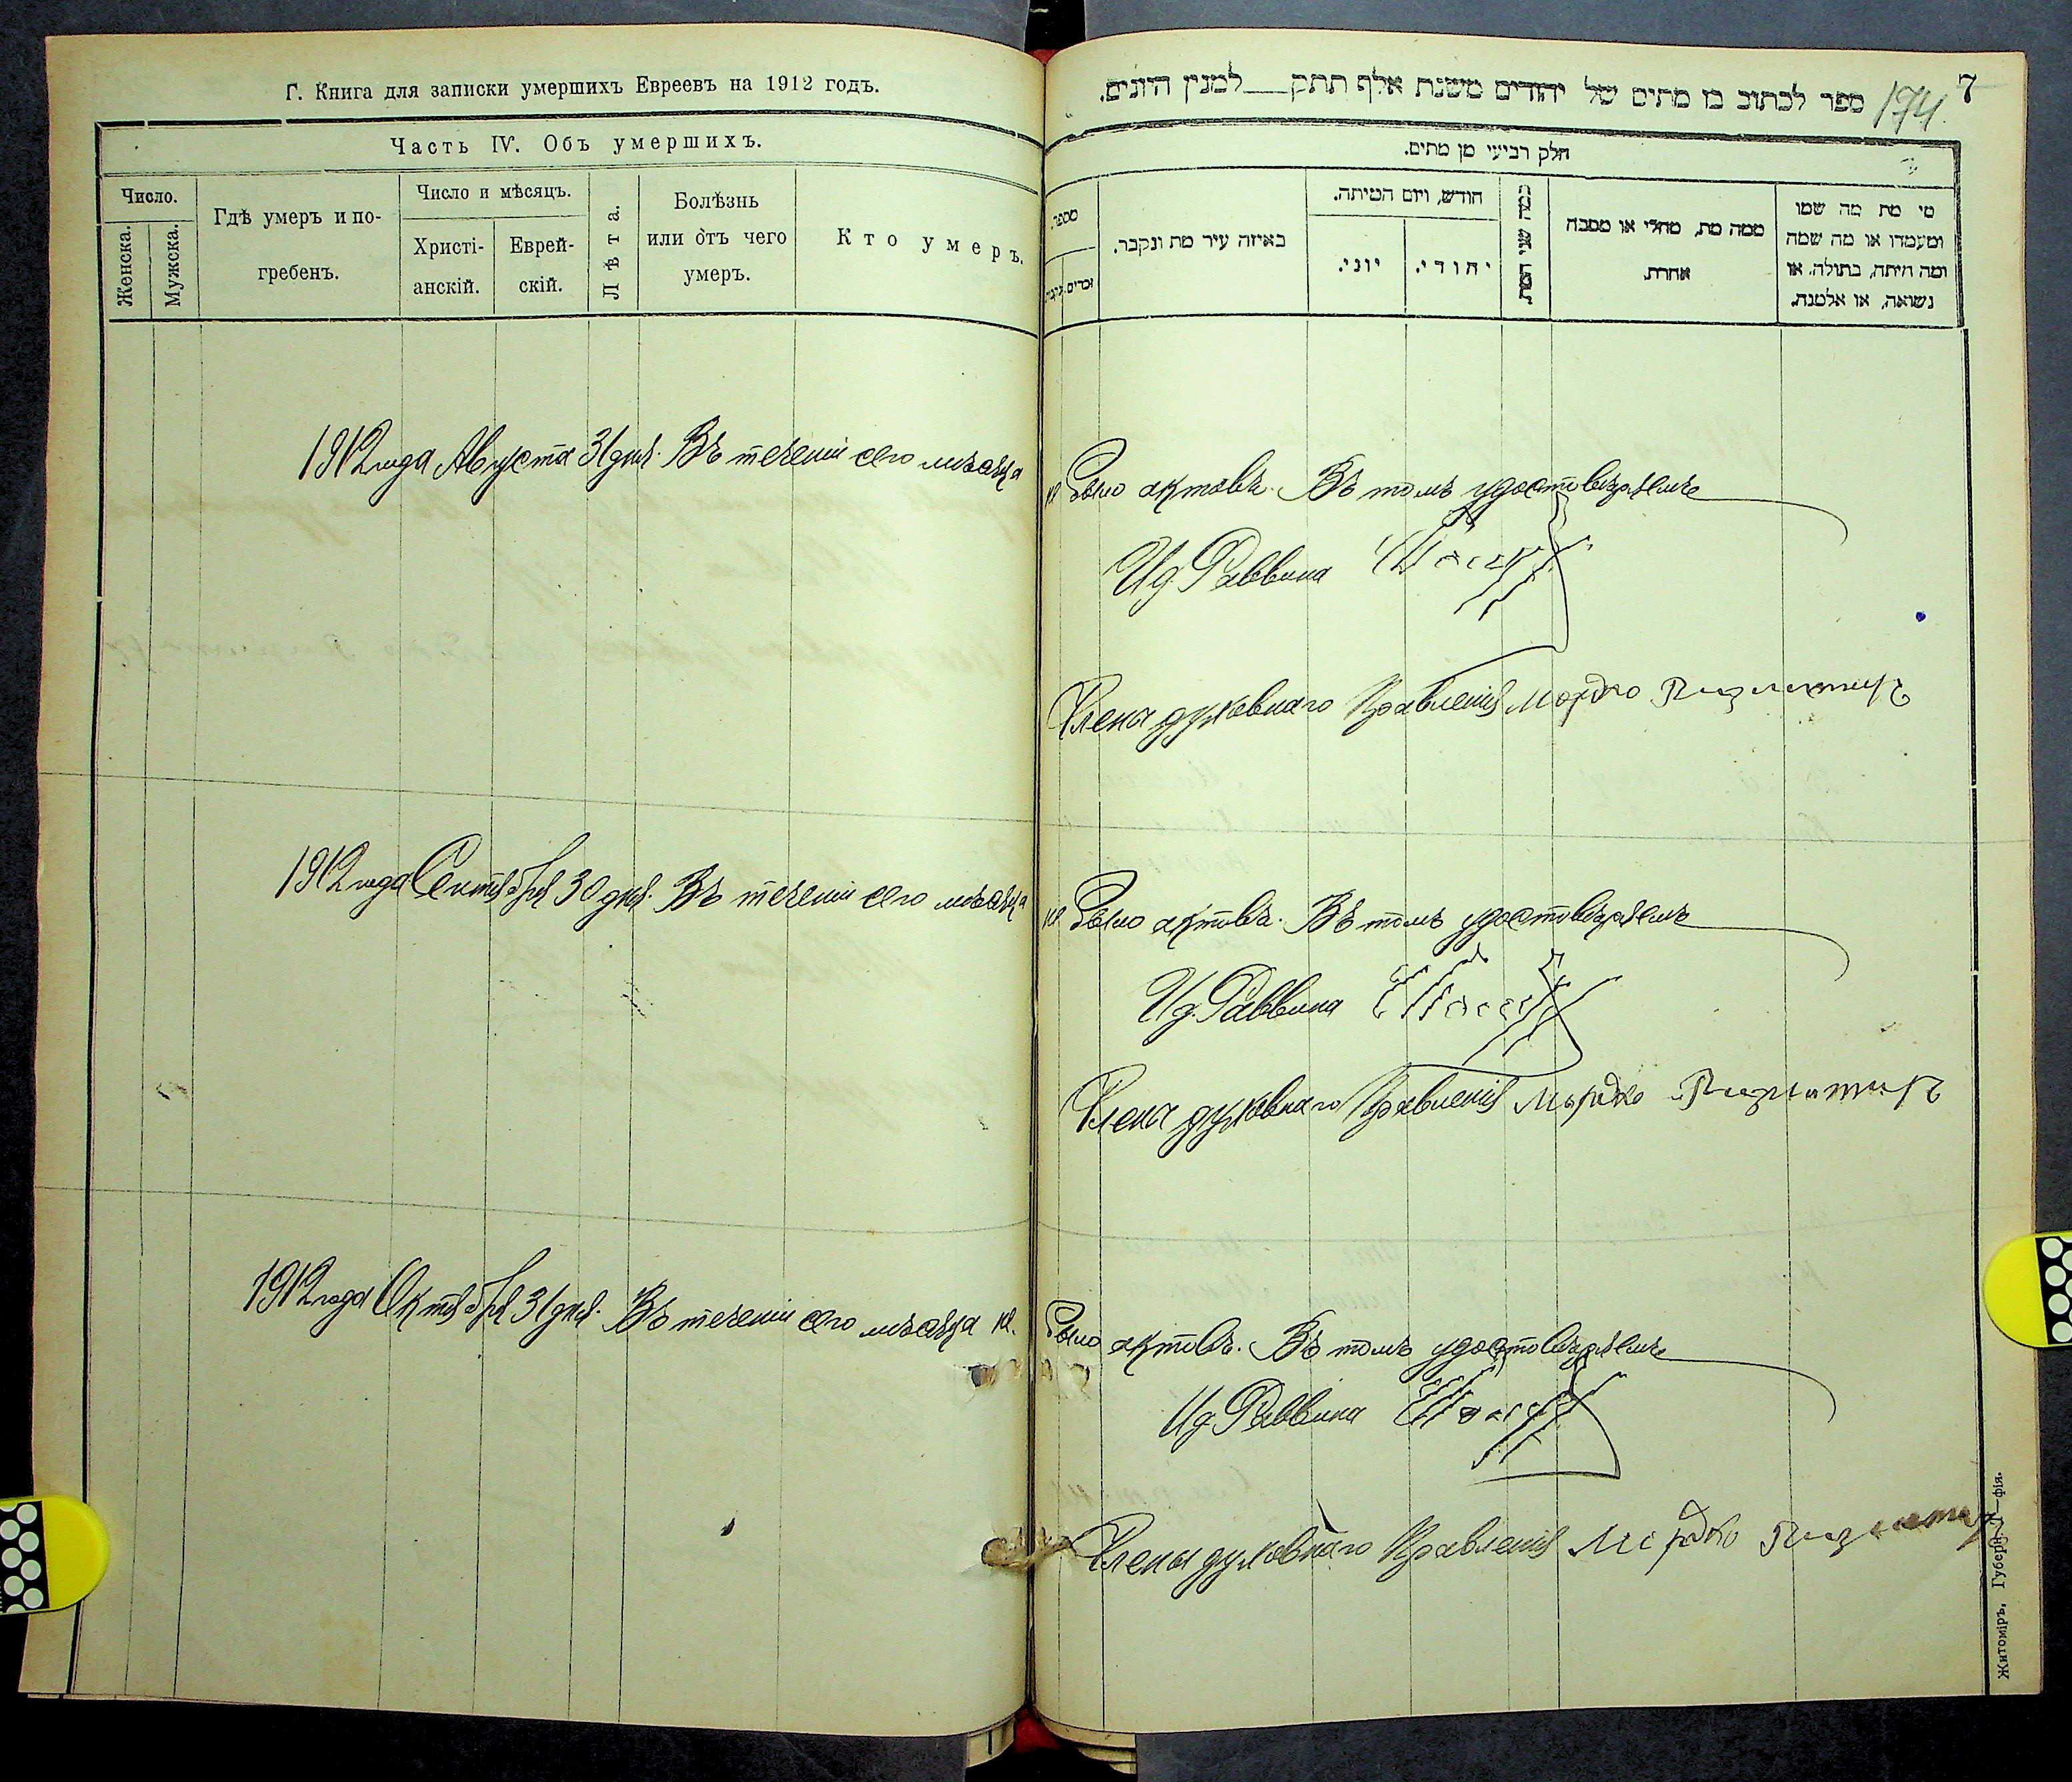 Г. Книга для записки умершихъ Евреевъ на 1912 годъ.
Часть IV. Объ умершихъ.
Число.
Женска.
Мужска.
Гдѣ умеръ и по-
гребенъ.
Число и мѣсяцъ.
Христі-
анскій.
Еврей-
скій.
Лѣта.
Болѣзнь
или отъ чего
умеръ.
Кто умеръ.
ספר לכתוב בו מתים של יהודים משנת אלף תתק למנין היונים.
174
7
חלק רביעי מן מתים.
מספר
זכרים.
באיזה עיר מת ונקבר.
חודש, ויום המיתה.
יוני.
יהודי.
כמה שני המת.
ממה מת, מחלי או מסבה
אחרת.
מי מת מה שמו
ומעמדו או מה שמה
ומה היתה, בתולה, או
נשואה, או אלמנה.
1912 года Августа 31 дня. Въ теченіи сего мѣсяца не было актовъ. Въ томъ удостовѣряемъ
И д. Раввина
Члена духовнаго Правленія Мордко
1912 года Сентября 30 дня. Въ теченіи сего мѣсяца не было актовъ. Въ томъ удостовѣряемъ
И д. Раввина
Члена духовнаго Правленія Мордко
1912 года Октября 31 дня. Въ теченіи сего мѣсяца не было актовъ. Въ томъ удостовѣряемъ
И д. Раввина
Члены духовнаго Правленія Мордко
Житомiръ, Губерн. Т—фія.